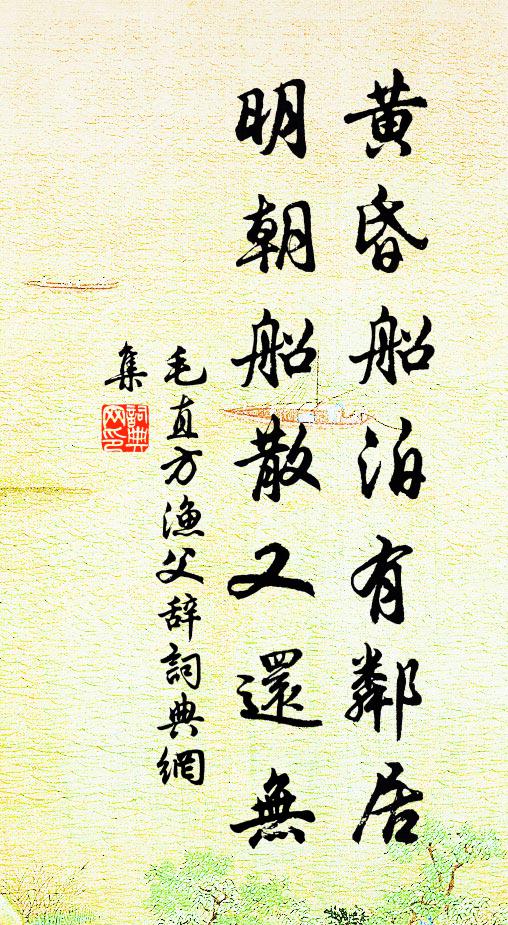 黃昏船泊有鄰居
明朝船散又還無
毛直方漁父辞詞典網
集
詞典
网印